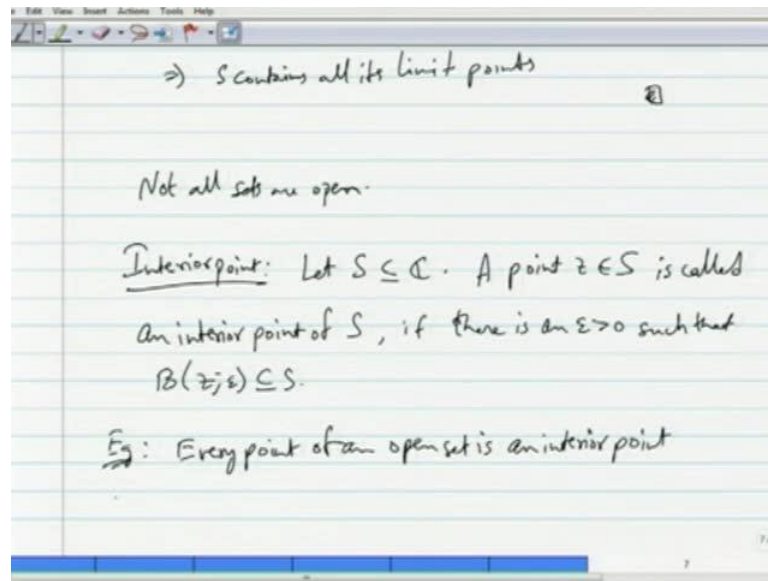 Edit View Insert Actions Tools Help
⇒) S contains all its limit points
Not all sets are open.
Interior point: Let S ⊆ ℂ. A point z ∈ S is called
an interior point of S, if there is an ε>0 such that
B(z;ε) ⊆ S.
Eg: Every point of an open set is an interior point
7